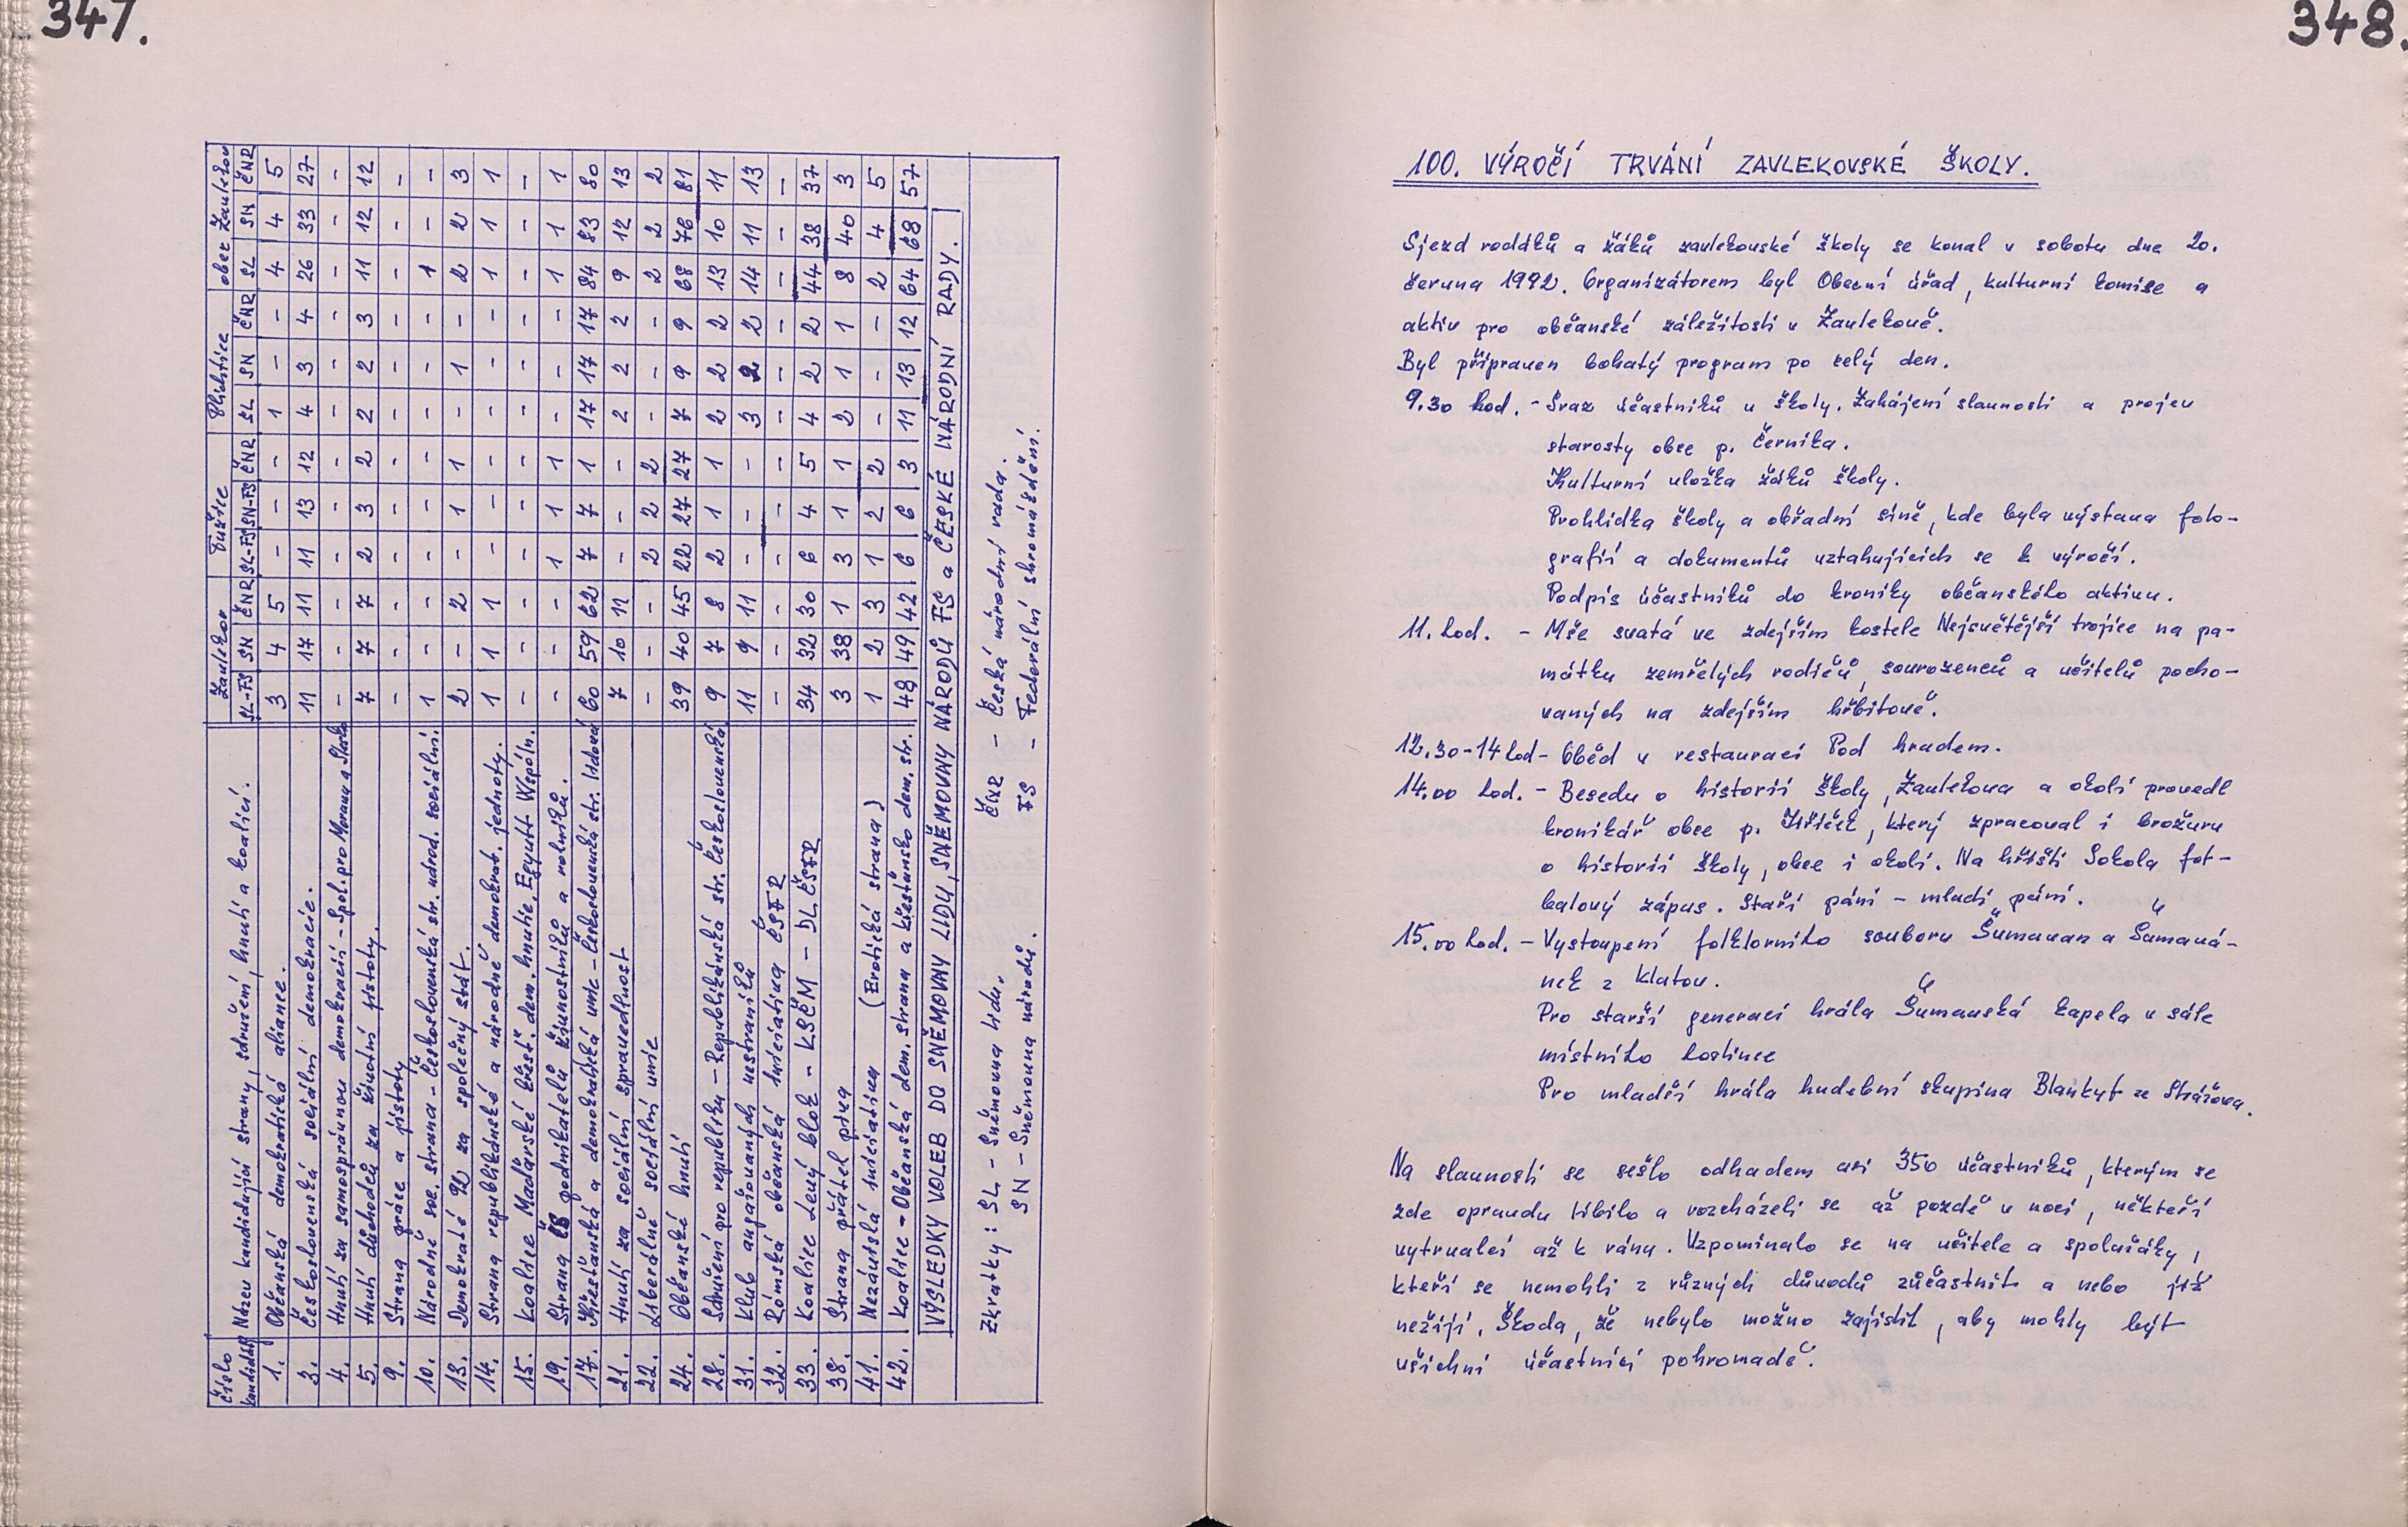 347.
číslo kandidátky | Název kandidující strany, sdružení, hnutí a koalicí. | Zavlekov SL-FS | SN | ČNR | Tužice SL-FS | SN-FS | ČNR | Plichtice SL | SN | ČNR | obec Zavlekov SL | SN | ČNR
1. | Občanská demokratická aliance. | 3 | 4 | 5 | - | - | - | 1 | - | - | 4 | 4 | 5
3. | Československá sociální demokracie. | 11 | 17 | 11 | 11 | 13 | 12 | 4 | 3 | 4 | 26 | 33 | 27
4. | Hnutí za samosprávnou demokracii - Spol. pro Moravu a Slezko | - | - | - | - | - | - | - | - | - | - | - | -
5. | Hnutí důchodců za životní jistoty. | 7 | 7 | 7 | 2 | 3 | 2 | 2 | 2 | 3 | 11 | 12 | 12
9. | Strana práce a jistoty | - | - | - | - | - | - | - | - | - | - | - | -
10. | Národně soc. strana - Československá str. národ. sociální. | 1 | - | - | - | - | - | - | - | - | 1 | - | -
13. | Demokraté 92 za společný stát. | 2 | - | 2 | - | 1 | 1 | - | 1 | - | 2 | 2 | 3
14. | Strana republikánské a národně demokrat. jednoty. | 1 | 1 | 1 | - | - | - | - | - | - | 1 | 1 | 1
15. | Koalice Maďarské křesť. dem. hnutie, Együtt Wspóln. | - | - | - | - | - | - | - | - | - | - | - | -
19. | Strana čs podnikatelů živnostníků a rolníků. | - | - | - | 1 | 1 | 1 | - | - | - | 1 | 1 | 1
17. | Křesťanská a demokratická unie - Československá str. lidová | 60 | 59 | 62 | 7 | 7 | 1 | 17 | 17 | 17 | 84 | 83 | 80
21. | Hnutí za sociální spravedlnost | 7 | 10 | 11 | - | - | - | 2 | 2 | 2 | 9 | 12 | 13
22. | Liberálně sociální unie | - | - | - | 2 | 2 | 2 | - | - | - | 2 | 2 | 2
24. | Občanské hnutí | 39 | 40 | 45 | 22 | 27 | 27 | 7 | 9 | 9 | 68 | 76 | 81
28. | Sdružení pro republiku - Republikánská str. Československa | 9 | 7 | 8 | 2 | 1 | 1 | 2 | 2 | 2 | 13 | 10 | 11
31. | Klub angažovaných nestraníků | 11 | 9 | 11 | - | - | - | 3 | 2 | 2 | 14 | 11 | 13
32. | Rómská občanská iniciativa ČSFR | - | - | - | - | - | - | - | - | - | - | - | -
33. | Koalice Levý blok - KSČM - DL ČSFR | 34 | 32 | 30 | 6 | 4 | 5 | 4 | 2 | 2 | 44 | 38 | 37
38. | Strana přátel piva | 3 | 38 | 1 | 3 | 1 | 1 | 2 | 1 | 1 | 8 | 40 | 3
41. | Nezávislá iniciativa (Erotická strana) | 1 | 2 | 3 | 1 | 2 | 2 | - | - | - | 2 | 4 | 5
42. | Koalice - Občanská dem. strana a křesťansko dem. str. | 48 | 49 | 42 | 6 | 6 | 3 | 11 | 13 | 12 | 64 | 68 | 57
VÝSLEDKY VOLEB DO SNĚMOVNY LIDU, SNĚMOVNY NÁRODŮ FS a ČESKÉ NÁRODNÍ RADY.
Zkratky: SL - Sněmovna lidu. ČNR - Česká národní rada.
SN - Sněmovna národů. FS - Federální shromáždění.
348.
100. VÝROČÍ TRVÁNÍ ZAVLEKOVSKÉ ŠKOLY.
Sjezd rodáků a žáků zavlekovské školy se konal v sobotu dne 20.
června 1992. Organizátorem byl Obecní úřad, kulturní komise a
aktiv pro občanské záležitosti v Zavlekově.
Byl připraven bohatý program po celý den.
9.30 hod. - Sraz účastníků u školy. Zahájení slavnosti a projev
starosty obce p. Černíka.
Kulturní vložka žáků školy.
Prohlídka školy a obřadní síně, kde byla výstava foto-
grafií a dokumentů vztahujících se k výročí.
Podpis účastníků do kroniky občanského aktivu.
11. hod. - Mše svatá ve zdejším kostele Nejsvětější trojice na pa-
mátku zemřelých rodičů, sourozenců a učitelů pocho-
vaných na zdejším hřbitově.
12.30-14 hod - Oběd v restauraci Pod hradem.
14.00 hod. - Besedu o historii školy, Zavlekova a okolí provedl
kronikář obce p. Jiříček, který zpracoval i brožuru
o historii školy, obce i okolí. Na hřišti Sokola fot-
balový zápas. Staří páni - mladí páni.
15.00 hod. - Vystoupení folklorního souboru Šumavan a Šumavá-
nek z Klatov.
Pro starší generaci hrála Šumavská kapela v sále
místního hostince
Pro mladší hrála hudební skupina Blankyt ze Strážova.
Na slavnosti se sešlo odhadem asi 350 účastníků, kterým se
zde opravdu líbilo a rozcházeli se až pozdě v noci, někteří
vytrvalci až k ránu. Vzpomínalo se na učitele a spolužáky,
kteří se nemohli z různých důvodů zúčastnit a nebo již
nežijí. Škoda, že nebylo možno zajistit, aby mohly být
všichni účastníci pohromadě.